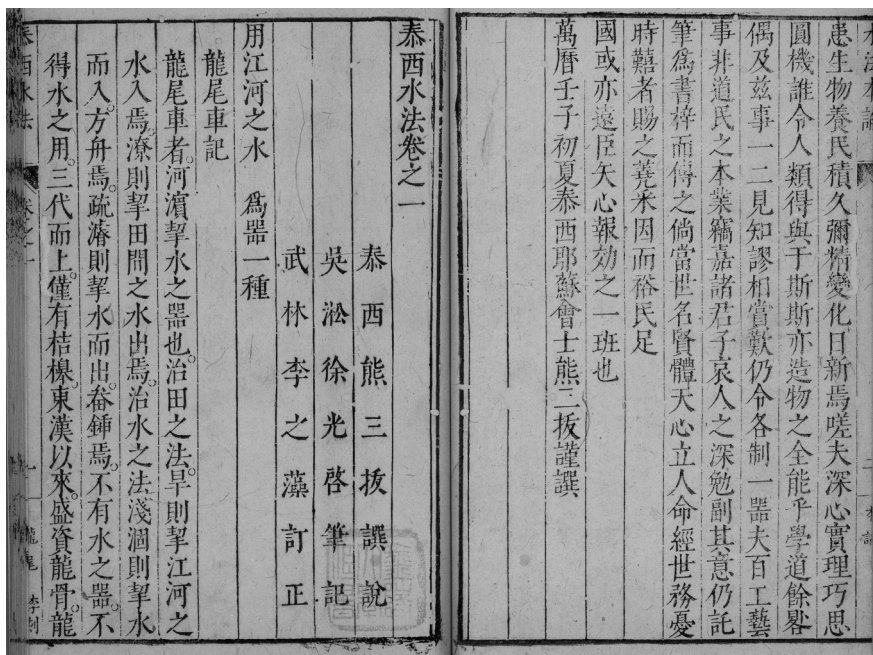 水法本論
患生物養民積久彌精變化日新焉嗟夫深心實理巧思
圓機誰令人類得與于斯斯亦造物之全能乎學道餘晷
偶及茲事一二見知謬相賞歎仍令各制一器夫百工藝
事非道民之本業竊嘉諸君子哀人之深勉副其意仍託
筆爲書梓而傳之倘當世名賢體天心立人命經世務憂
時囏者賜之蕘采因而裕民足
國或亦遠臣矢心報効之一班也
萬曆壬子初夏泰西耶蘇會士熊三拔謹譔
泰西水法卷之一
泰西熊三拔譔說
吳淞徐光啓筆記
武林李之藻訂正
用江河之水 爲器一種
龍尾車記
龍尾車者。河濱挈水之器也。治田之法。旱則挈江河之
水入焉。潦則挈田間之水出焉。治水之法。淺涸則挈水
而入。方舟焉。疏濬則挈水而出。畚鍤焉。不有水之器。不
得水之用。三代而上。僅有桔橰。東漢以來。盛資龍骨。龍
泰西水法 卷之一 龍尾 李刻